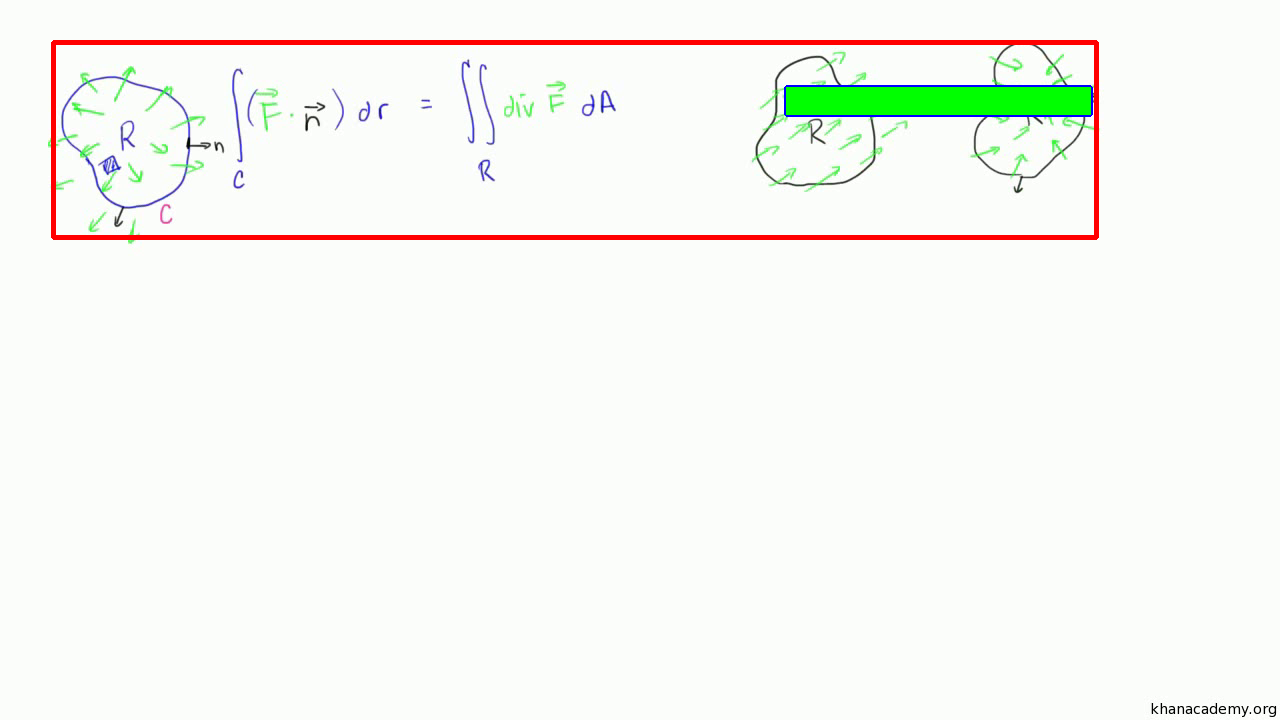 R n C
∫_C (F⃗ · n⃗) dr = ∬_R div F⃗ dA
R
khanacademy.org